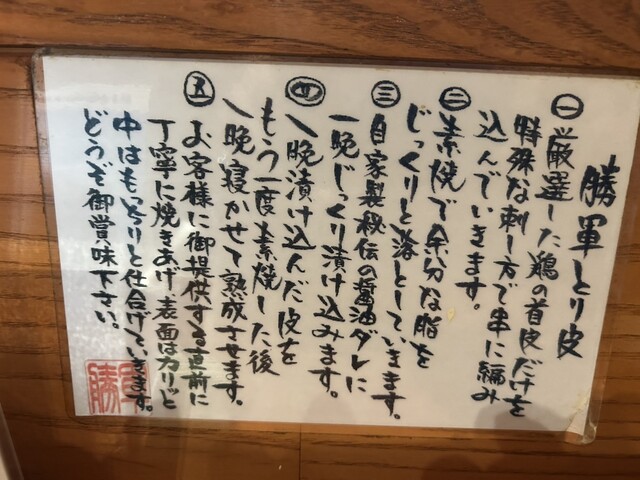 勝軍とり皮
㊀厳選した鶏の首皮だけを
特殊な刺し方で串に編み
込んでいきます。
㊁素焼で余分な脂を
じっくりと落としていきます。
㊂自家製秘伝の醤油ダレに
一晩じっくり漬け込みます。
㊃一晩漬け込んだ皮を
もう一度素焼した後
一晩寝かせて熟成させます。
㊄お客様に御提供する直前に
丁寧に焼きあげ、表面はカリッと
中はもっちりと仕合げていきます。
どうぞ御賞味下さい。
勝軍